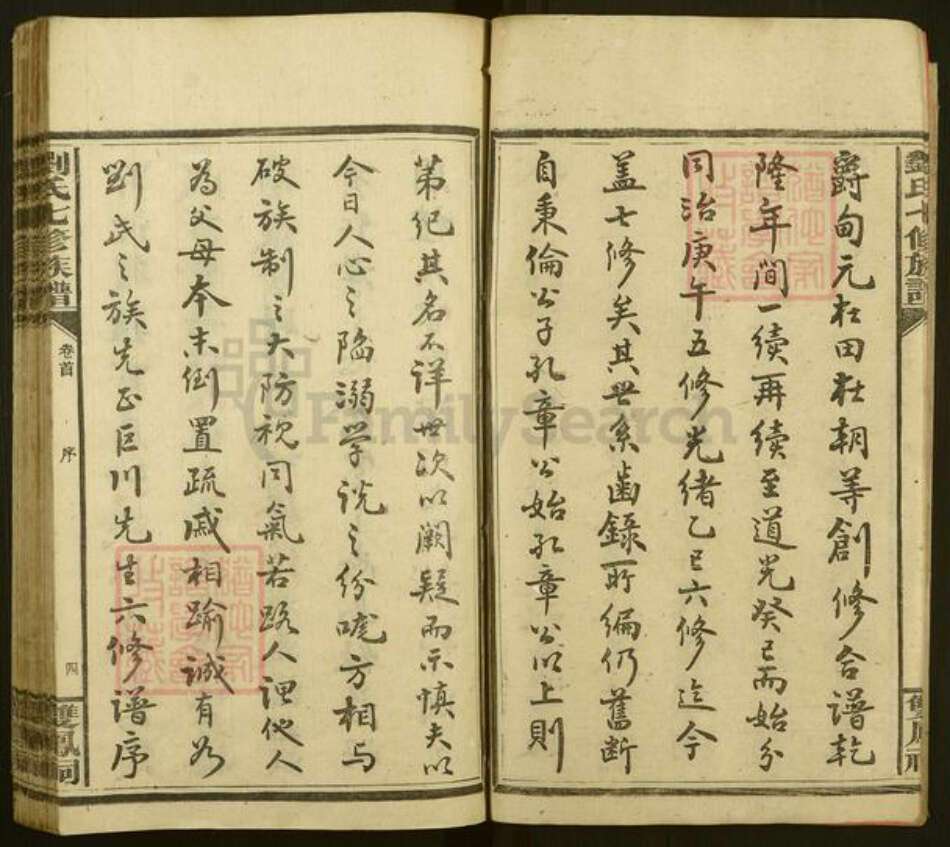 爵甸元在田在朝等創修合譜乾
隆年間一續再續至道光癸巳而始分
同治庚午五修光緒乙巳六修迄今
蓋七修矣其世系齒錄所編仍舊斷
自秉倫公子孔章公始孔章公以上則
第紀其名不詳世次以闕疑而示慎夫以
今日人心之陷溺學說之紛哤方相與
破族制之大防視同氣若路人謂他人
為父母本末倒置疏戚相踰誠有如
劉氏之族先正巨川先生六修譜序
劉氏七修族譜
卷首
序
四
雙鳳祠
劉氏七修族譜
雙鳳祠
FamilySearch